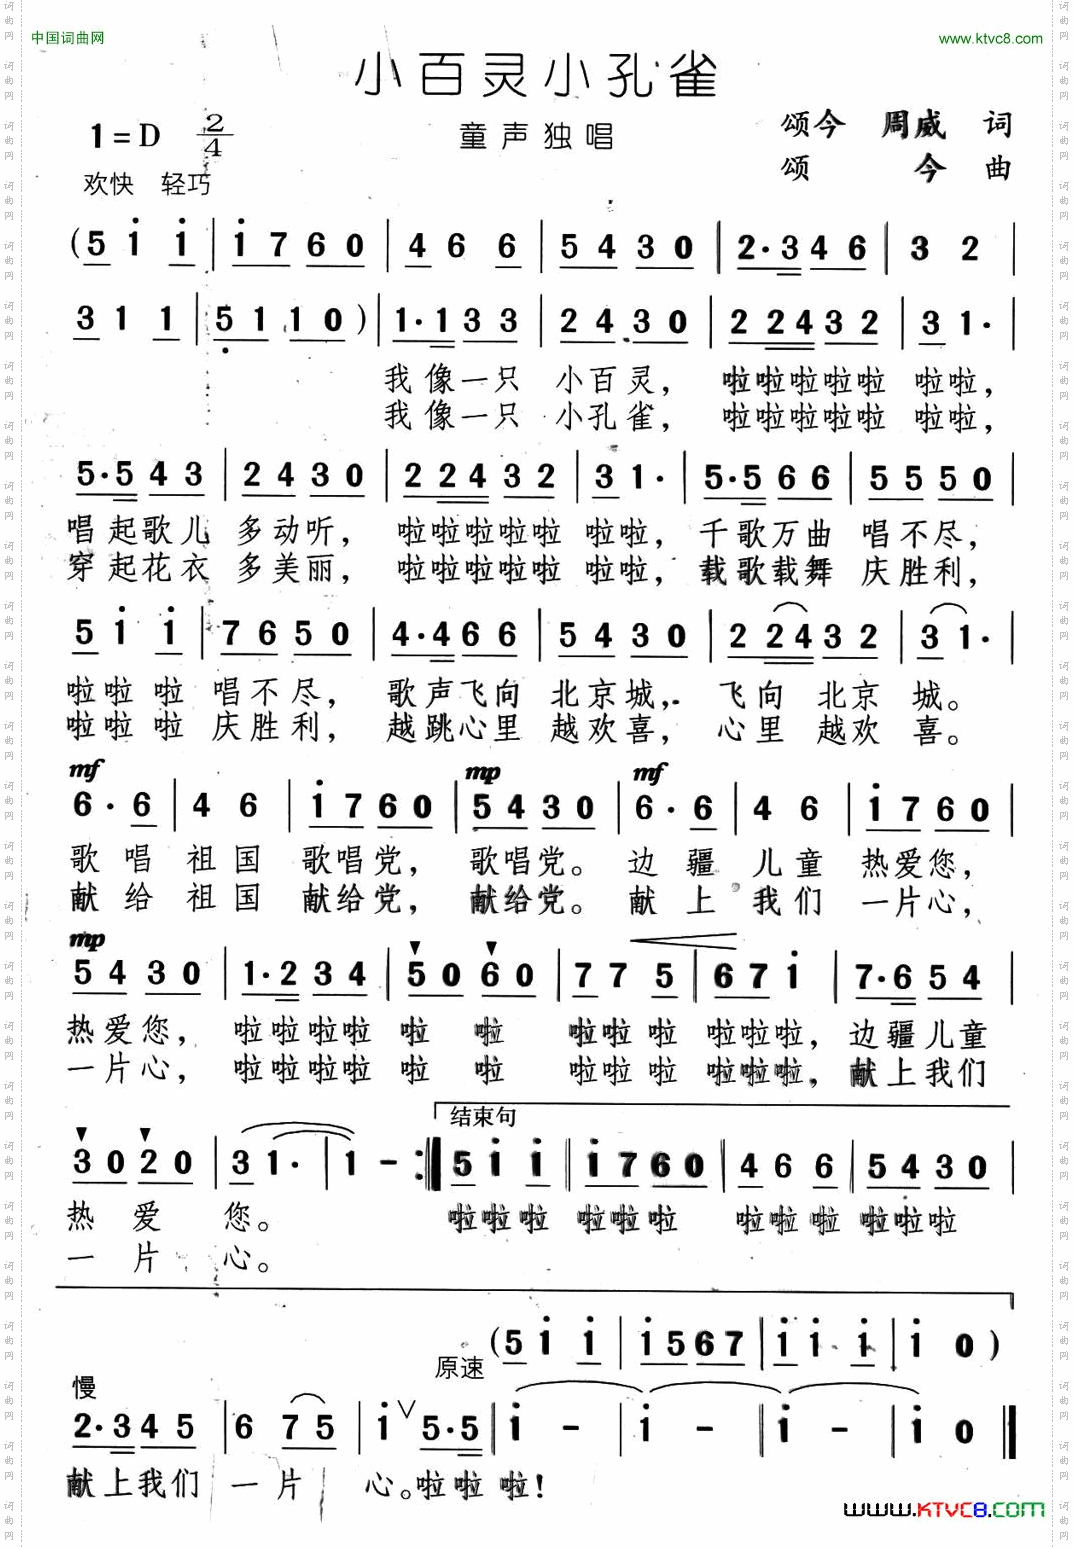 中国词曲网 www.ktvc8.com
小百灵小孔雀
1=D 2/4 童声独唱 颂今 周威 词
欢快 轻巧 颂今 曲
(5 i i | i 7 6 0 | 4 6 6 | 5 4 3 0 | 2·3 4 6 | 3 2 |
3 1 1 | 5 1 1 0 ) | 1·1 3 3 | 2 4 3 0 | 2 2 4 3 2 | 3 1· |
我像一只 小百灵, 啦啦啦啦啦 啦啦,
我像一只 小孔雀, 啦啦啦啦啦 啦啦,
5·5 4 3 | 2 4 3 0 | 2 2 4 3 2 | 3 1· | 5·5 6 6 | 5 5 5 0 |
唱起歌儿 多动听, 啦啦啦啦啦 啦啦, 千歌万曲 唱不尽,
穿起花衣 多美丽, 啦啦啦啦啦 啦啦, 载歌载舞 庆胜利,
5 i i | 7 6 5 0 | 4·4 6 6 | 5 4 3 0 | 2 2 4 3 2 | 3 1· |
啦啦 啦 唱不尽, 歌声飞向 北京城, 飞向 北京 城。
啦啦 啦 庆胜利, 越跳心里 越欢喜, 心里 越欢 喜。
mf mp mf
6· 6 | 4 6 | i 7 6 0 | 5 4 3 0 | 6· 6 | 4 6 | i 7 6 0 |
歌 唱 祖 国 歌唱党, 歌唱党。 边 疆 儿 童 热爱您,
献 给 祖 国 献给党, 献给党。 献 上 我 们 一片心,
mp
5 4 3 0 | 1·2 3 4 | 5 0 6 0 | 7 7 5 | 6 7 i | 7·6 5 4 |
热爱您, 啦啦啦啦 啦 啦 啦啦 啦 啦啦啦, 边疆儿童
一片心, 啦啦啦啦 啦 啦 啦啦 啦 啦啦啦, 献上我们
结束句
3 0 2 0 | 3 1· | 1 - :‖ 5 i i | i 7 6 0 | 4 6 6 | 5 4 3 0 |
热 爱 您。 啦啦啦 啦啦啦 啦啦 啦 啦啦啦
一 片 心。
(5 i i | i 5 6 7 | i i i | i 0 )
慢 原速
2·3 4 5 | 6 7 5 | i ∨ 5·5 | i - | i - | i - | i 0 ‖
献上我们 一 片 心。啦啦 啦!
www.KTVC8.com